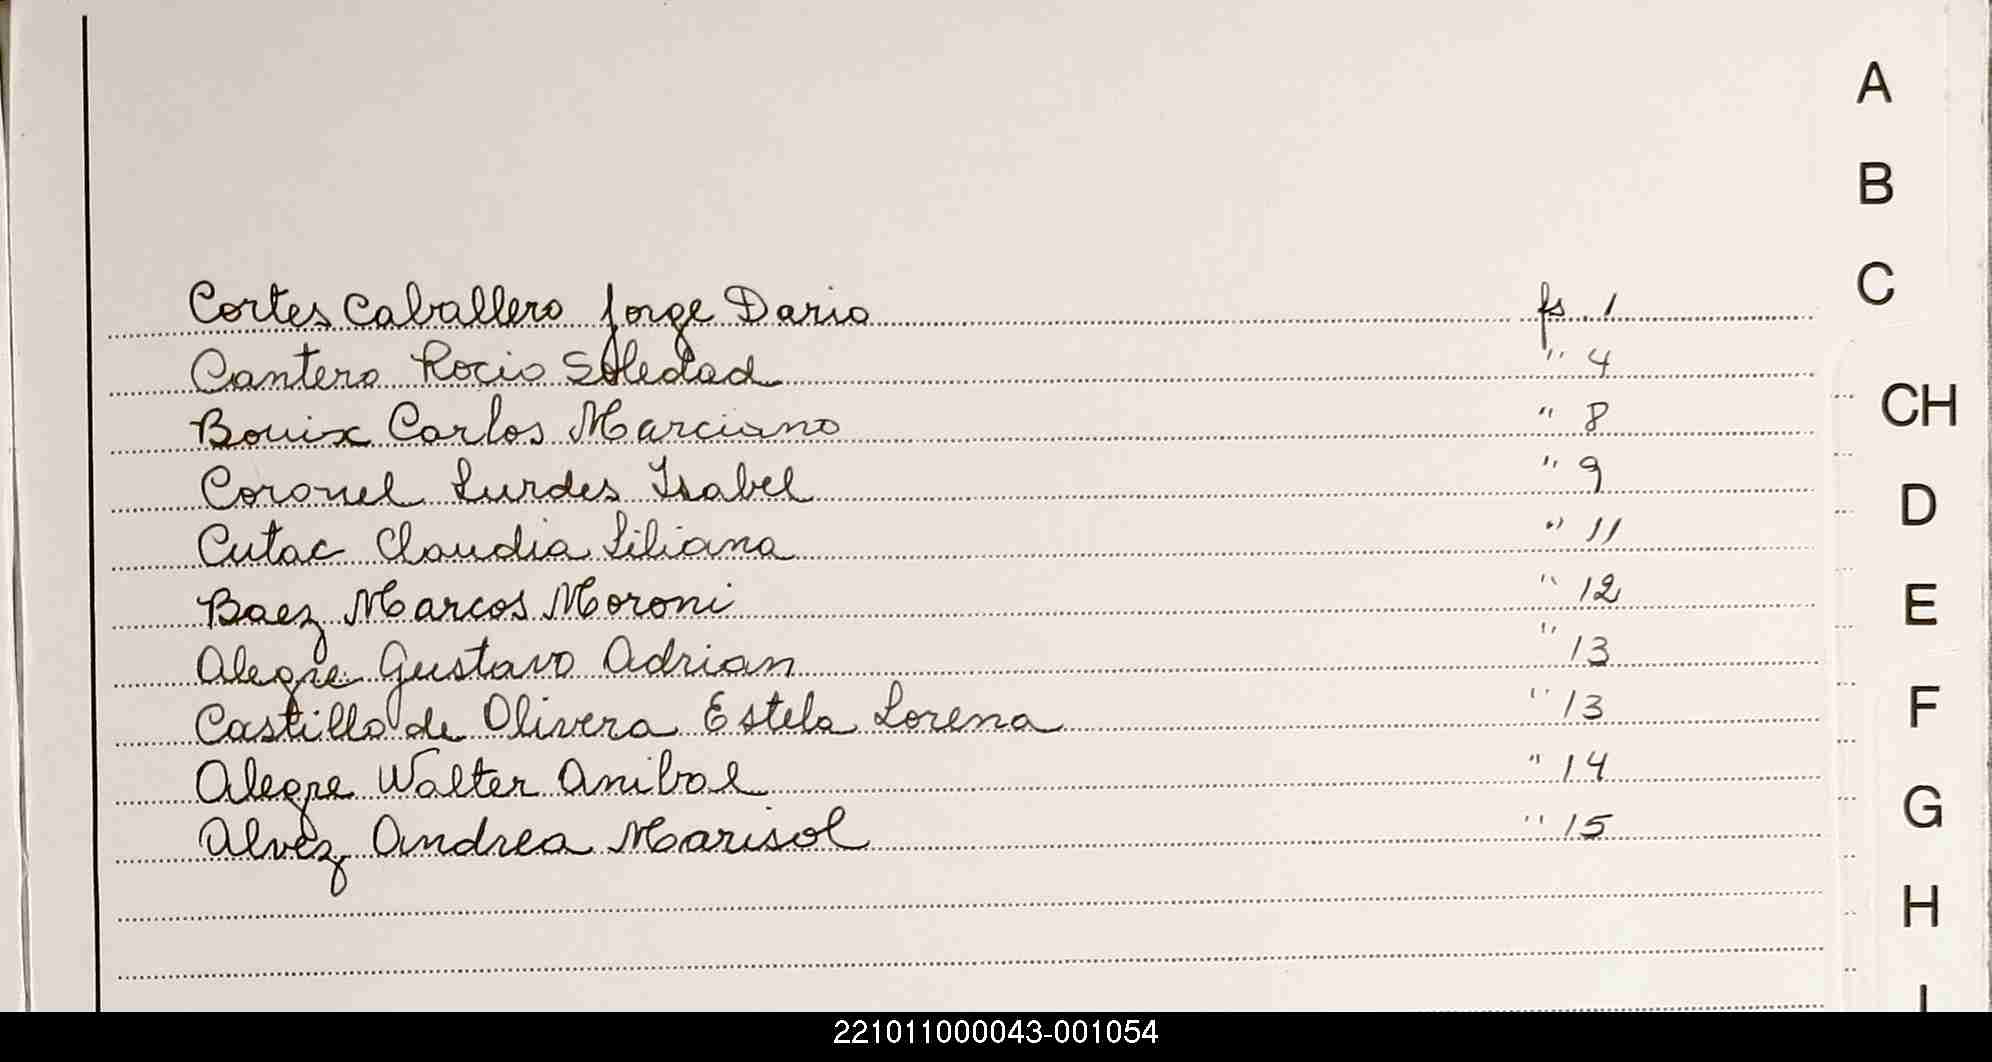 A
B
C
Cortes Caballero Jorge Dario fs. 1
Cantero Rocio Soledad " 4
CH
Bouix Carlos Marciano " 8
Coronel Lurdes Isabel " 9
D
Cutac Claudia Liliana " 11
Baez Marcos Moroni " 12
E
Alegre Gustavo Adrian " 13
Castillo de Olivera Estela Lorena " 13
F
Alegre Walter Anibal " 14
G
Alvez Andrea Marisol " 15
H
I
221011000043-001054